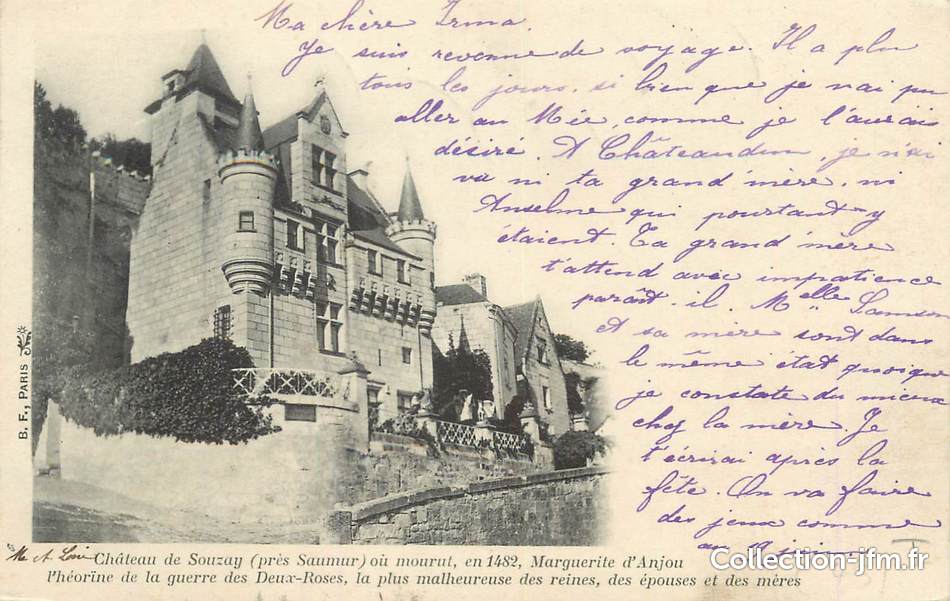 Ma chère Irma
Je suis revenue de voyage. Il a plu
tous les jours. si bien que je n'ai pu
aller au Mée, comme je l'aurais
désiré. A Châteaudun, je n'ai
vu ni ta grand'mère, ni
Anselme qui pourtant y
étaient. Ta grand'mère
t'attend avec impatience
paraît-il. Melle Samson
et sa mère sont dans
le même état quoique
je constate du mieux
chez la mère. Je
t'écrirai après la
fête. On va faire
des jeux comme
au
B. F., PARIS
M et Loire - Château de Souzay (près Saumur) où mourut, en 1482, Marguerite d'Anjou
l'héorïne de la guerre des Deux-Roses, la plus malheureuse des reines, des épouses et des mères
Collection-jfm.fr